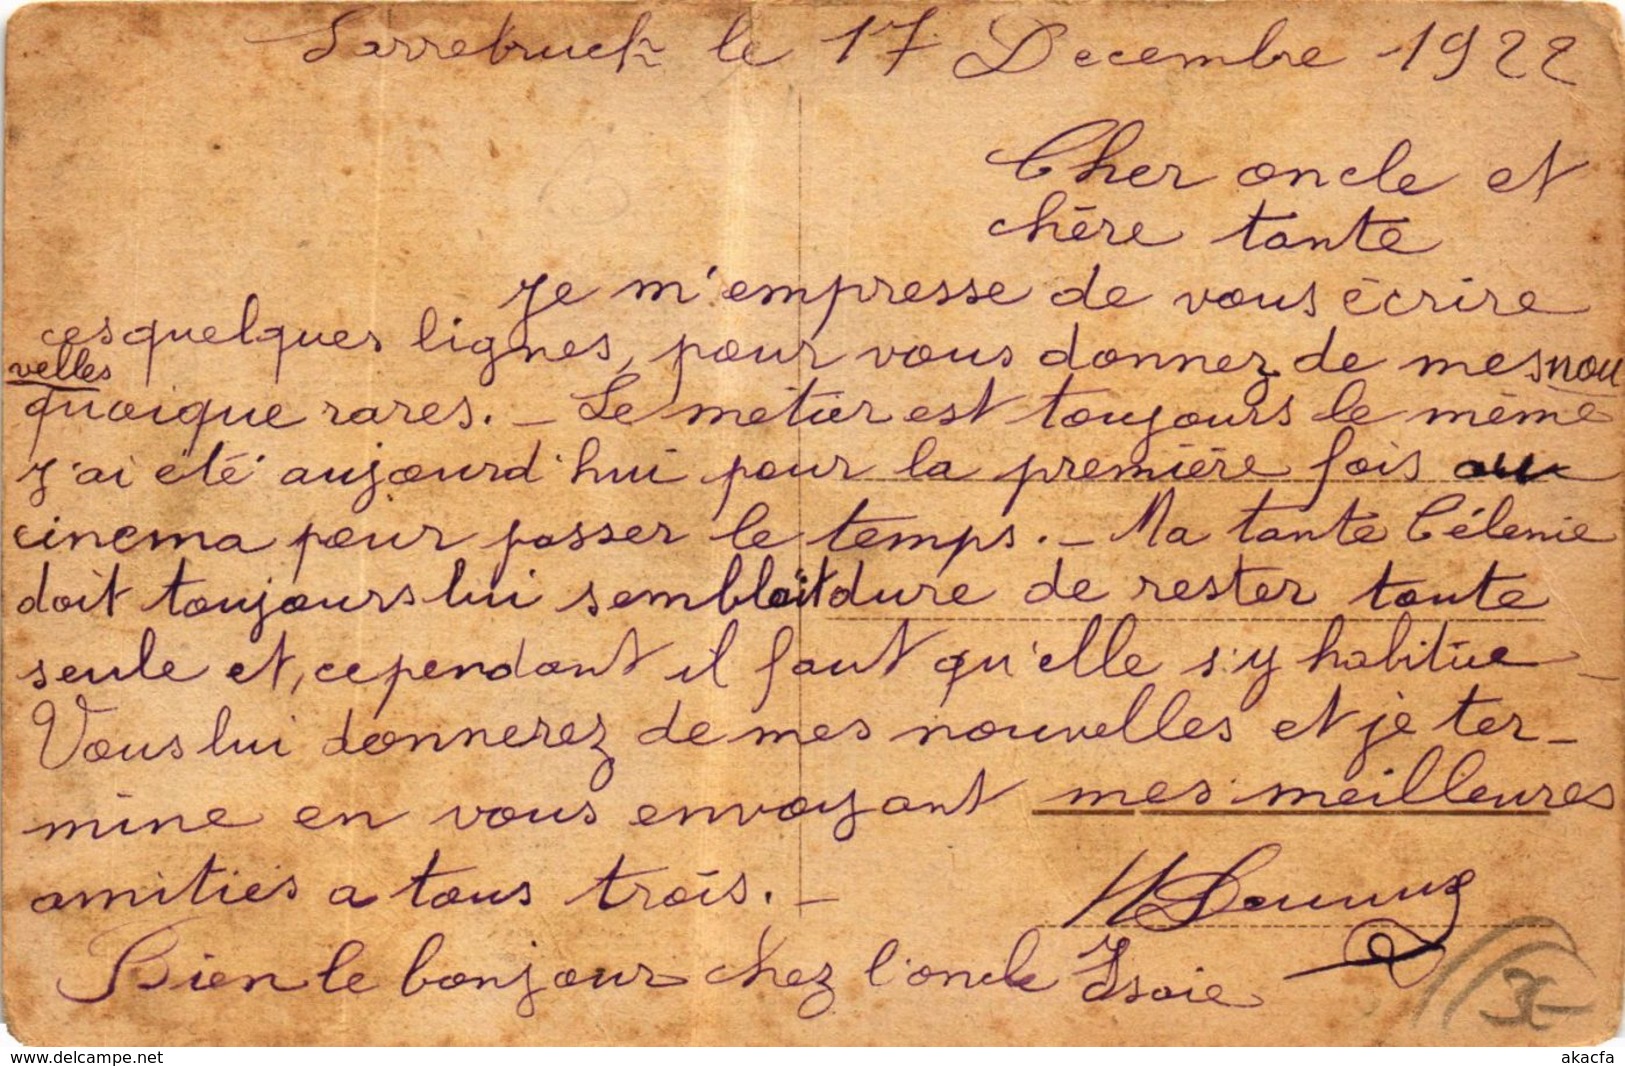 Sarrebruck le 17 Decembre 1922
Cher oncle et
chère tante
Je m'empresse de vous écrire
ces quelques lignes, pour vous donnez de mes nou
velles
quoique rares. _ Le métier est toujours le même
J'ai été aujourd'hui pour la première fois au
cinema pour passer le temps. _ Ma tante Célenie
doit toujours lui semblait dure de rester toute
seule et, cependant il faut qu'elle s'y habitue _
Vous lui donnerez de mes nouvelles et je ter_
mine en vous envoyant mes meilleures
amitiés a tous trois. _
Bien le bonjour chez l'oncle Isaie
3€
www.delcampe.net
akacfa